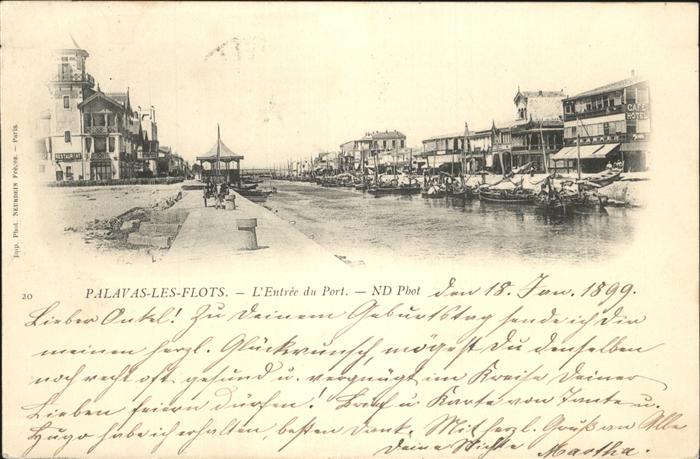 RESTAURANT
CAFÉ
HOTEL
Imp. Phot. NEURDEIN Frères. — Paris.
20 PALAVAS-LES-FLOTS. — L'Entrée du Port. — ND Phot
den 18. Jan. 1899.
Lieber Onkel! Zu Deinem Geburtstag sende ich Dir
meinen herzl. Glückwunsch, mögest Du denselben
noch recht oft gesund u. vergnügt im Kreise Deiner
Lieben feiern dürfen! Brief u. Karte von Tante u.
Hugo habe ich erhalten, besten Dank. Mit herzl. Gruß an Alle
Deine Nichte Martha.